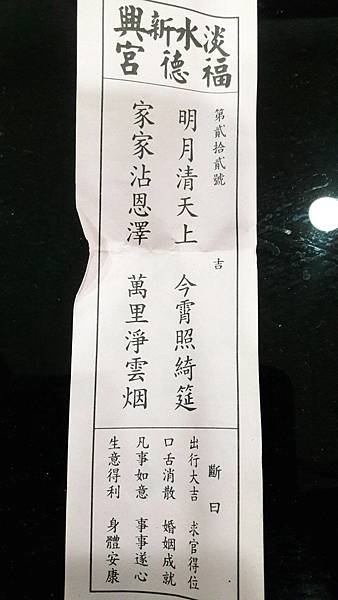 淡水新興
福德宮
第貳拾貳號 吉
明月清天上 今霄照綺筵
家家沾恩澤 萬里淨雲烟
斷曰
出行大吉 求官得位
口舌消散 婚姻成就
凡事如意 事事遂心
生意得利 身體安康